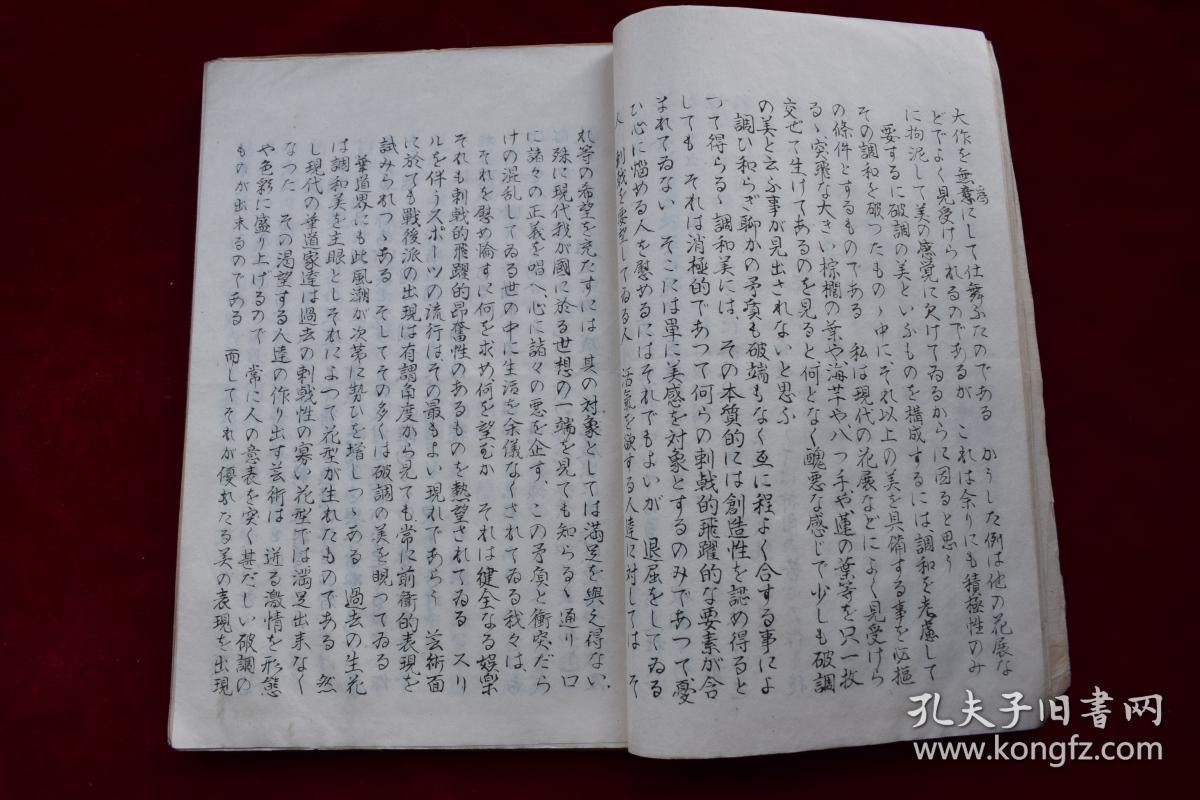 大作を無意にして仕舞ふたのである　かうした例は他の花展な
どでよく見受けられるのであるが　これは余りにも積極性のみ
に拘泥して美の感覚に欠けてゐるからに因ると思う
要するに破調の美といふものを構成するには調和を考慮して
その調和を破つたものゝ中に、それ以上の美を具備する事を必極
の條件とするものである　私は現代の花展などによく見受けら
るゝ突飛な大きい棕櫚の葉や、海芋や、八ツ手や蓮の葉等を只一枚
交ぜて生けてあるのを見ると何となく醜悪な感じで少しも破調
の美と云ふ事が見出されないと思ふ
調ひ和らぎ聊かの矛盾も破端もなく互に程よく合する事によ
つて得らるゝ調和美には、その本質的には創造性を認め得ると
しても　それは消極的であつて何らの刺戟的飛躍的な要素が含
まれてゐない　そこには單に美感を対象とするのみであつて、憂
ひ心に悩める人を慰めるにはそれでもよいが　退屈をしてゐる
人　刺戟を要望してゐる人　活氣を欲する人達に対しては　そ
れ等の希望を充たすには其の対象としては満足を與え得ない、
殊に現代我が國に於る世想の一端を見ても知らるゝ通り　口
に諸々の正義を唱へ心に諸々の悪を企す、この矛盾と衝突だら
けの混乱してゐる世の中に生活を余儀なくされてゐる我々は、
それを慰め愉すに何を求め、何を望むか　それは健全なる娯樂
それも刺戟的飛躍的昂奮性のあるものを熱望されてゐる　スリ
ルを伴うスポーツの流行は、その最もよい現れであらう　芸術面
に於ても戰後派の出現は有謂角度から見ても、常に前衛的表現を
試みられつゝある　そしてその多くは破調の美を覗つてゐる
華道界にも此風潮が次第に勢ひを増しつゝある　過去の生花
は調和美を主眼としそれによつて花型が生れたものである　然
し現代の華道家達は過去の刺戟性の寡い花型では満足出来なく
なつた　その渇望する人達の作り出す芸術は　迸る激情を形態
や色彩に盛り上げるので　常に人の意表を突く甚だしい破調の
ものが出来るのである　而してそれが優れたる美の表現を出現
孔夫子旧书网
www.kongfz.com